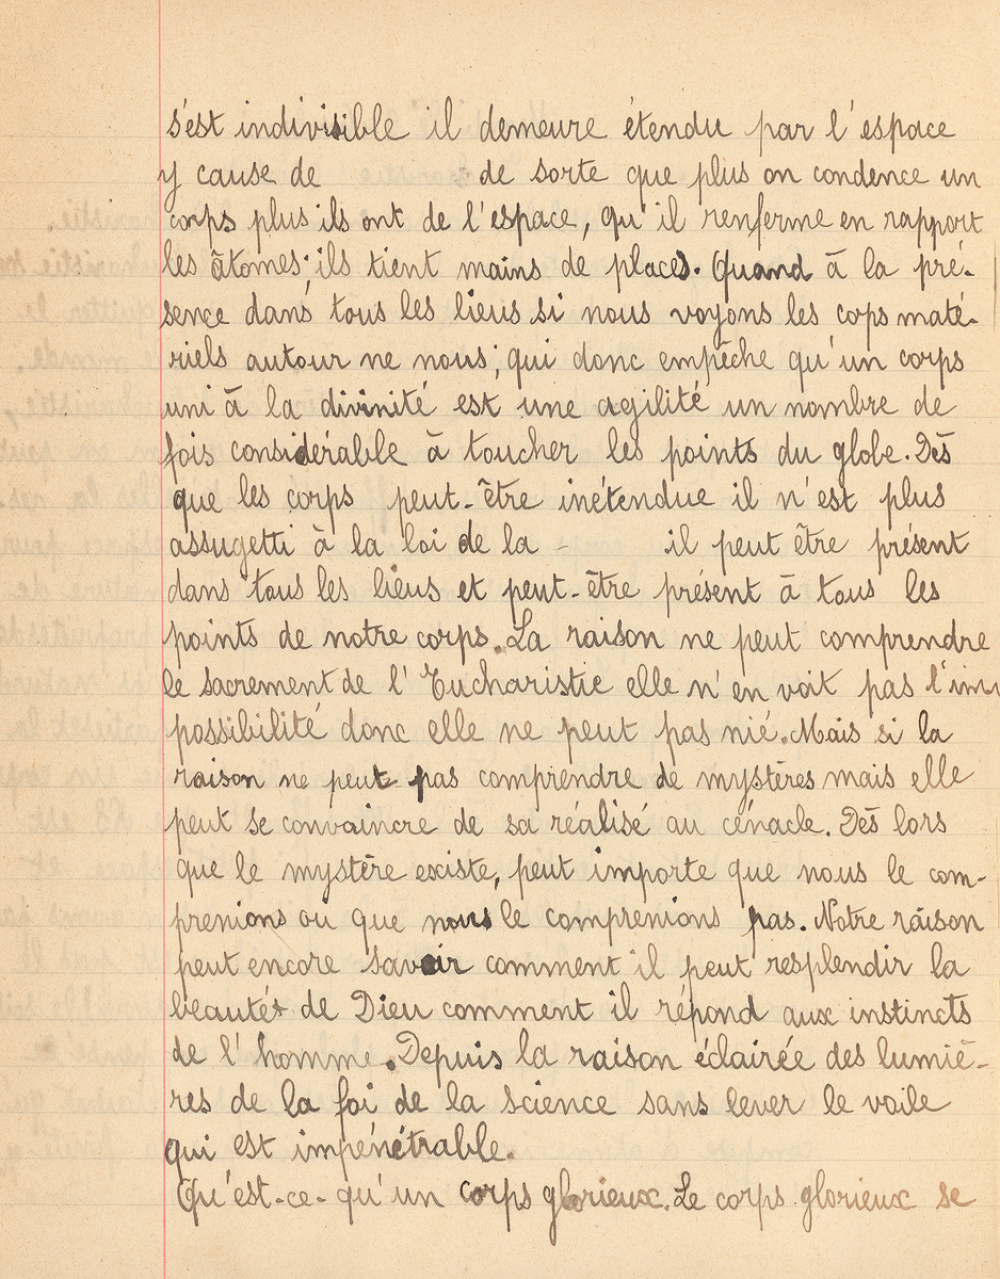 s'est indivisible il demeure étendu par l'espace
y cause de de sorte que plus on condence un
corps plus ils ont de l'espace, qu'il renferme en rapport
les âtomes ils tient mains de places. Quand à la pré-
sence dans tous les lieus si nous voyons les cops maté-
riels autour ne nous, qui donc empêche qu'un corps
uni à la divinité est une agilité un nombre de
fois considérable à toucher les points du globe. Dès
que les corps peut-être inétendue il n'est plus
assugetti à la loi de la - il peut être présent
dans tous les lieus et peut-être présent à tous les
points de notre corps. La raison ne peut comprendre
le sacrement de l'Eucharistie elle n'en voit pas l'im
possibilité donc elle ne peut pas nié. Mais si la
raison ne peut pas comprendre de mystères mais elle
peut se convaincre de sa réalisé au cénacle. Dès lors
que le mystère existe, peut importe que nous le com-
prenions ou que nous le comprenions pas. Notre raison
peut encore savoir comment il peut resplendir la
beauté de Dieu comment il répond aux instincts
de l'homme. Depuis la raison éclairée des lumiè-
res de la foi de la science sans lever le voile
qui est impénétrable.
Qu'est-ce-qu'un corps glorieux. Le corps glorieux se